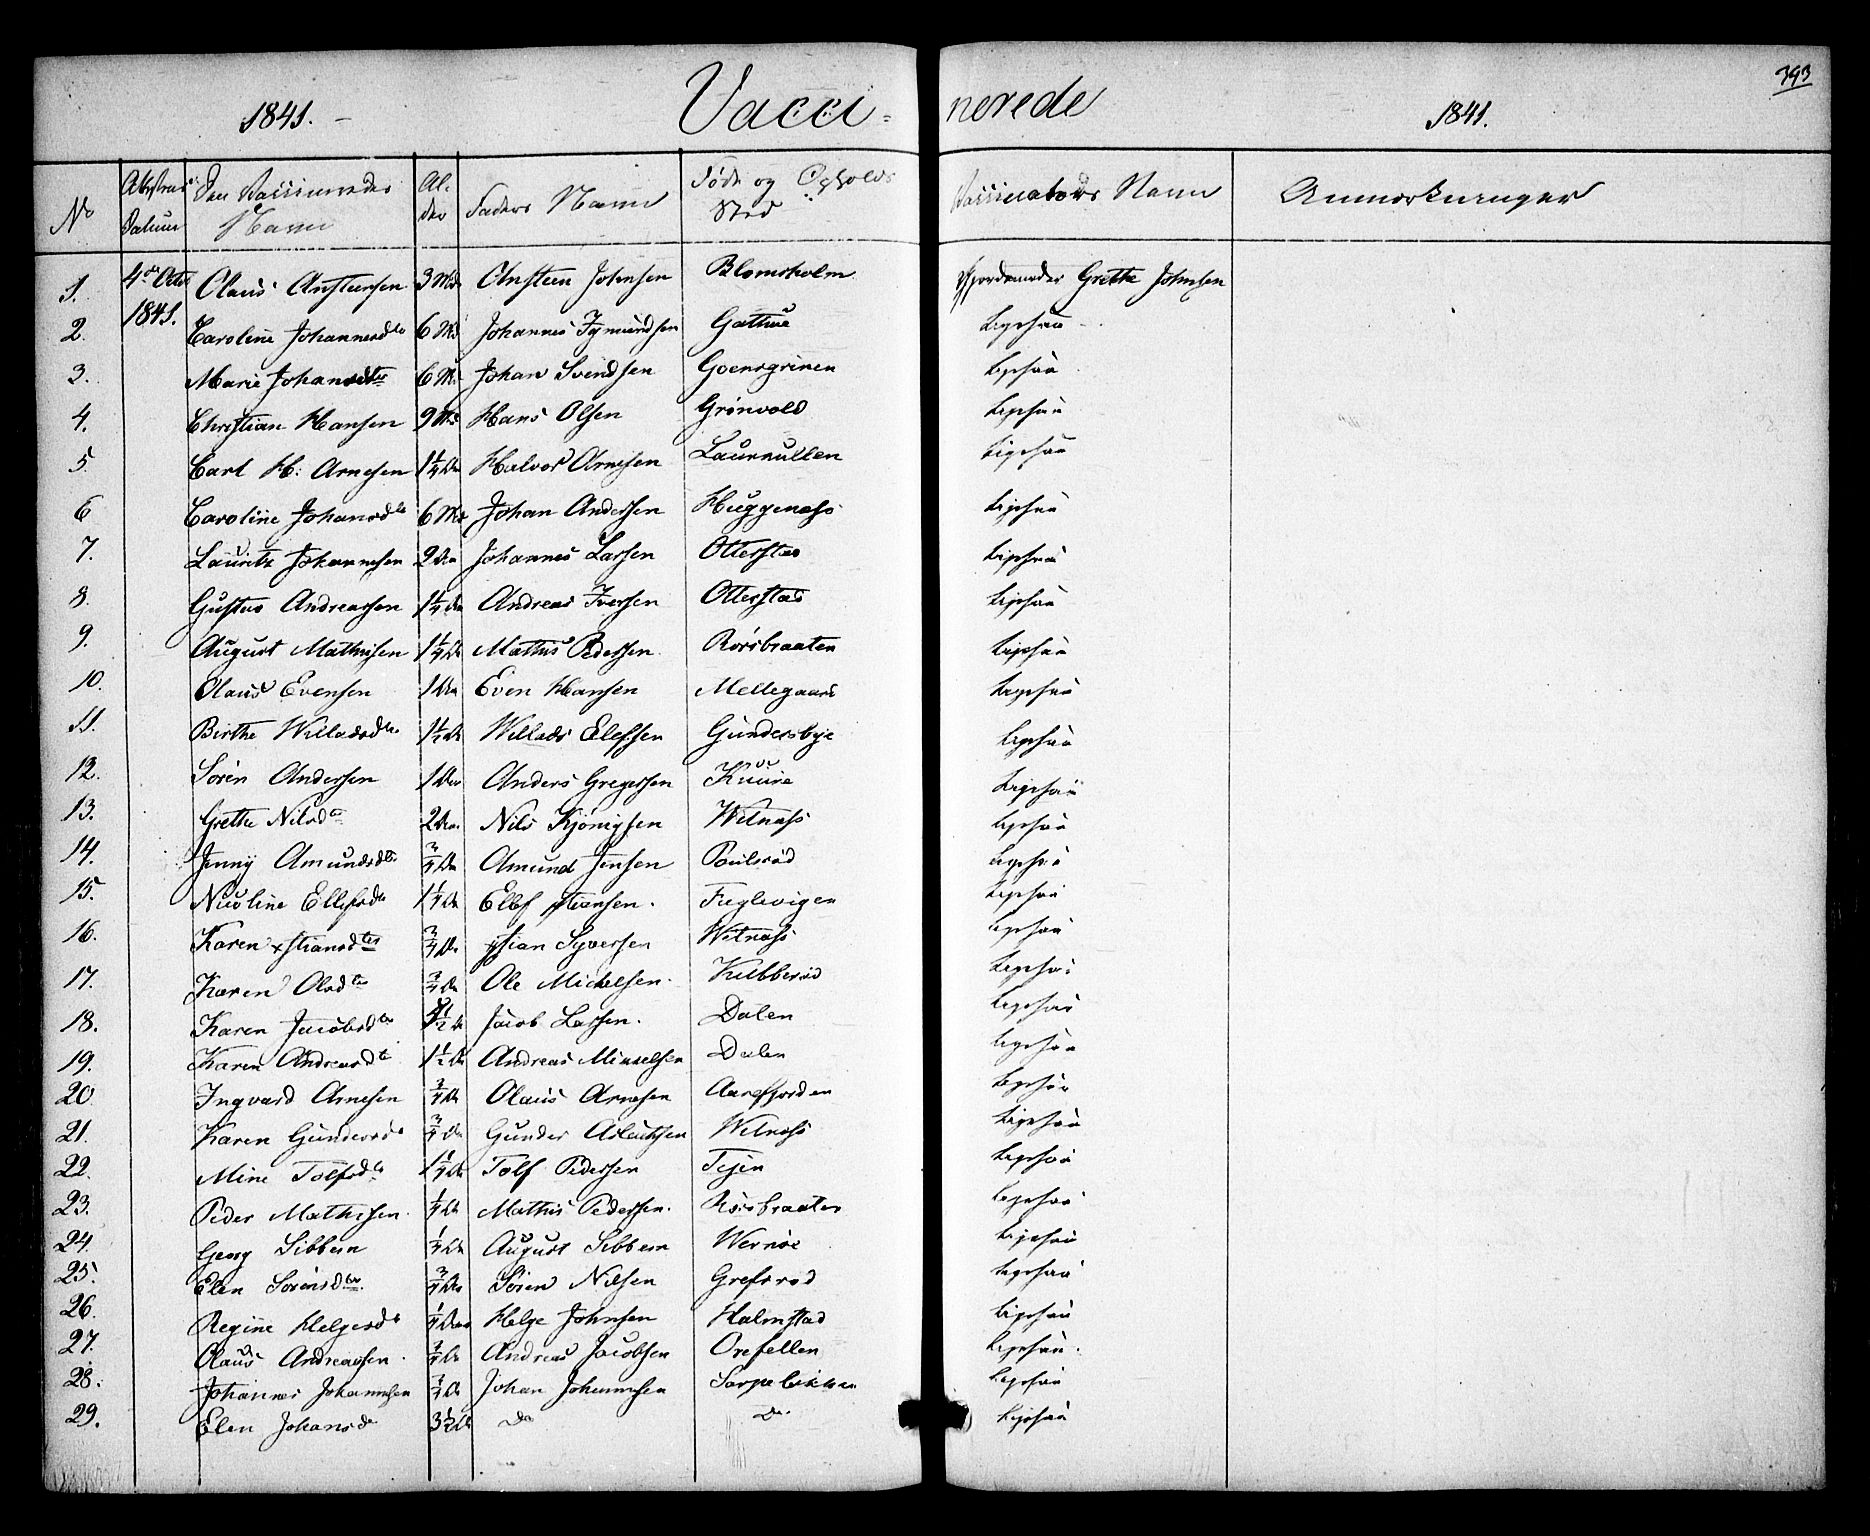 393
1841. Vacci= nerede 1841.
No Datum Den Vaccineredes Navn Al- der Faders Navn Føde og Opholds Sted Vaccinators Navn Anmærkninger
1. 4de Octr 1841. Olaus Anstensen 3 Md Ansteen Johnsen Blomsholm Gjordemoder Grethe Johnsen
2. Caroline Johannesdtr 6 Md Johannes Sigmundsen Ligesaa
3. Marie Johansdtr 6 M. Johan Svendsen Ligesaa
4. Christian Hansen 9 Md Hans Olsen Grönvold Ligesaa
5. Carl H: Arnesen 1¼ Halvor Arnesen Laurkullen Ligesaa
6 Caroline Johansdtr 6 Md Johan Andersen Huggenæs Ligesaa
7. Lauritz Johannesen 2 Johannes Larsen Otterstad Ligesaa
8. Gustav Andreassen 1¼ Andreas Iversen Otterstad Ligesaa
9. August Mathisen 1¼ Mathis Pedersen Rörsbraaten Ligesaa
10. Olaus Evensen 1 Even Hansen Mellegaard Ligesaa
11. Birthe Willadsdtr 1½ Willads Elefsen Gundersbye Ligesaa
12. Sören Andersen 1 Anders Gregersen Kuure Ligesaa
13. Grethe Nilsdtr 2 Nils Kjönigsen Witnæs Ligesaa
14. Jenny Amundsdtr ¾ Amund Jensen Poulsröd Ligesaa
15. Nicoline Ellefsdtr 1¼ Ellef Xstiansen. Fuglevigen Ligesaa
16. Karen Xstiansdtr ¾ Xstian Syversen Witnæs Ligesaa
17. Karen Olsdtr ¾ Ole Mickelsen. Kelbberöd Ligesaa
18. Karen Jacobsdtr Jacob Larsen. Dalen Ligesaa
19. Karen Andreasdtr 1½ Andreas Mickelsen Dalen Ligesaa
20. Ingvard Arnesen ¾ Olaus Arnesen Aarefjorden Ligesaa
21. Karen Gundersd ¾ Gunder Aslachsen Witnæs Ligesaa
22. Mine Tolfsdtr 1¼ Tolf Pedersen Tejen Ligesaa
23. Peder Mathisen. ¼ Mathis Pedersen. Rörsbraaten Ligesaa
24. Georg Sibbern ¼ August Sibbern Wernöe Ligesaa
25. Elen Sörensdtr. ¾ Sören Nilsen Grefsröd Ligesaa
26. Regine Helgesdtr ¼ Helge Johnsen Halmstad Ligesaa
27. Olaus Andreassen. ¾ Andreas Jacobsen Orefellen Ligesaa.
28. Johannes Johannesen ¾ Johan Johannesen Ligesaa
29. Elen Johansd 3½ Do Do. Ligesaa